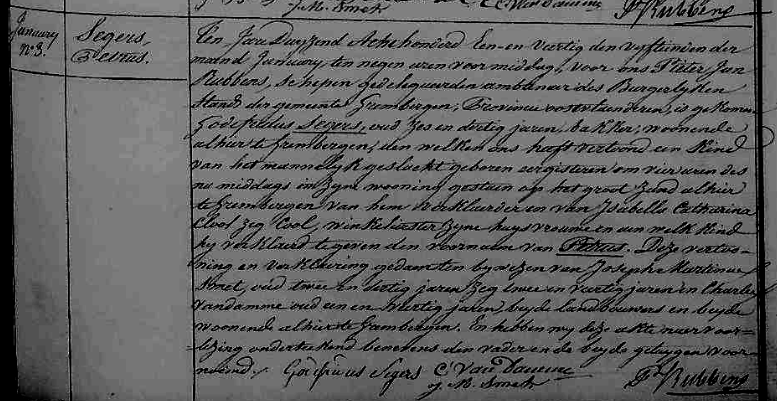 J. M. Smet C. Van Damme Pr Rubbens
January
N° 3.
Segers,
Petrus.
Ten Jare Duyzend Acht honderd Een-en-Vertig den vyftienden der
maand January, ten negen uren voormiddag, voor ons Pieter Jan
Rubbens, schepen gedelegueerden ambtenaer des Burgerlyken
Stand der gemeente Grembergen, Provincie oostvlaenderen, is gekomen
Godefridus Segers, oud zes en dertig jaren, bakker, woonende
alhier te Grembergen, den welken ons heeft vertoond een Kind
van het mannelyk geslacht geboren eergisteren om vier uren des
na middags in zyne wooning gestaen op het groot Zand alhier
te Grembergen van hem verklaerder en van Isabella Catharina
Cool, zeg Cool, winkelierster zyne huysvrouwe en aen welk kind
hy verklaerd te geven den voornaem van Petrus. Deze vertoo-
ning en verklaering gedaen ten bywezen van Joseph Martinus
Smet, oud twee en dertig jaren zeg twee en veertig jaren en Charles
Vandamme oud een en veertig jaren, beyde landbouwers en beyde
woonende alhier te Grembergen. En hebben wy deze akte naer voor-
lezing onderteekend benevens den vader en de beyde getuygen voor-
noemd.
Godefridus Segers C. Van Damme
J. M. Smet Pr Rubbens